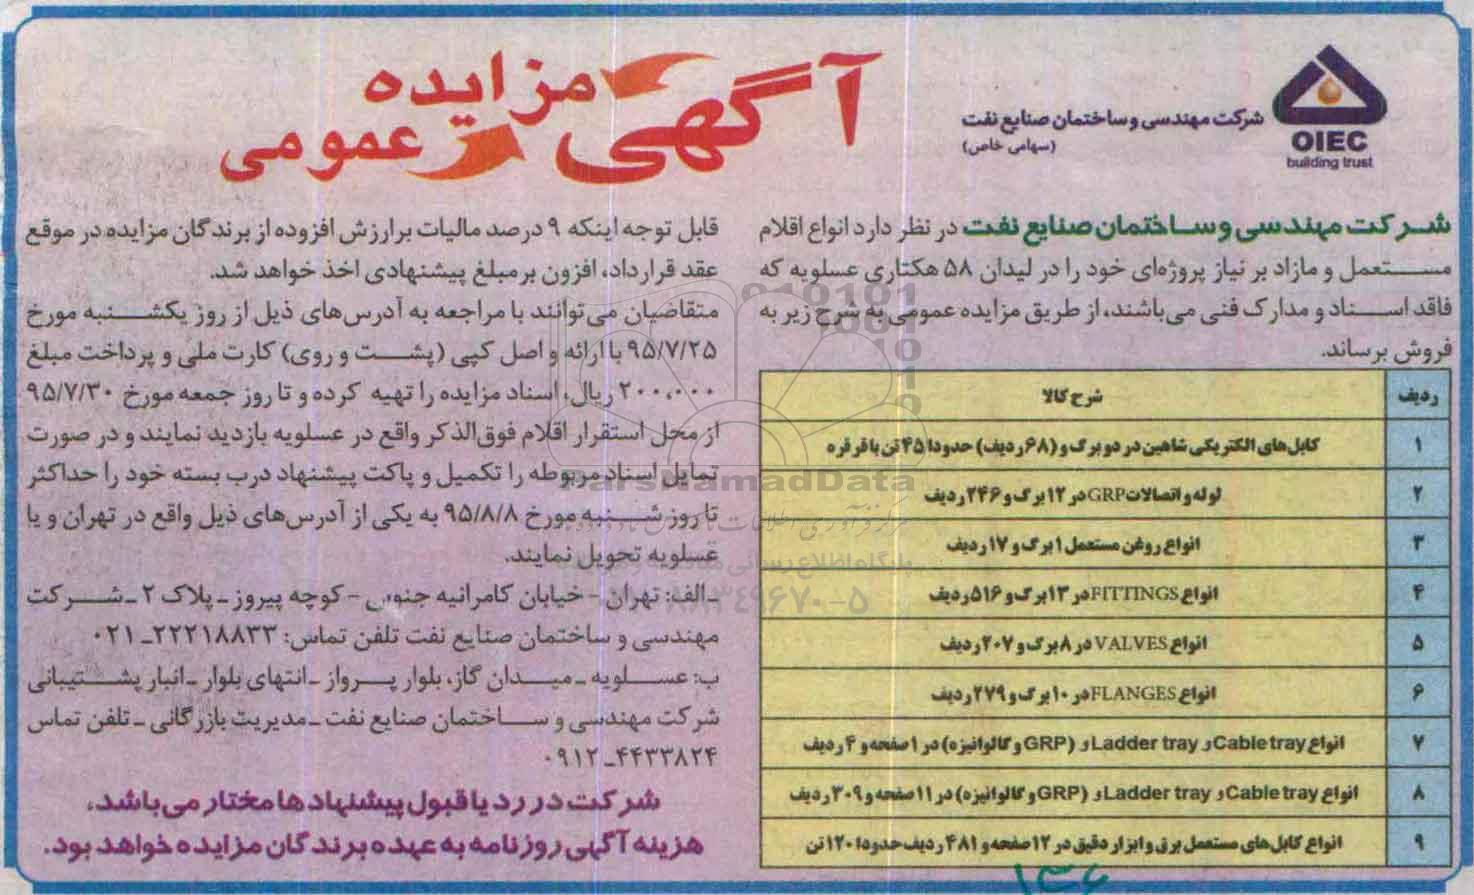 OIEC
building trust
شرکت مهندسی و ساختمان صنایع نفت
(سهامی خاص)
آگهی مزایده عمومی
شرکت مهندسی و ساختمان صنایع نفت در نظر دارد انواع اقلام
مستعمل و مازاد بر نیاز پروژه‌ای خود را در لیدان ۵۸ هکتاری عسلویه که
فاقد اسناد و مدارک فنی می‌باشند، از طریق مزایده عمومی به شرح زیر به
فروش برساند.
ردیف شرح کالا
۱ کابل‌های الکتریکی شاهین در دو برگ و (۶۸ ردیف) حدودا ۴۵ تن با قرقره
۲ لوله و اتصالات GRP در ۱۲ برگ و ۲۴۶ ردیف
۳ انواع روغن مستعمل ۱ برگ و ۱۷ ردیف
۴ انواع FITTINGS در ۱۳ برگ و ۵۱۶ ردیف
۵ انواع VALVES در ۸ برگ و ۲۰۷ ردیف
۶ انواع FLANGES در ۱۰ برگ و ۲۷۹ ردیف
۷ انواع Cable tray و Ladder tray و (GRP و گالوانیزه) در ۱ صفحه و ۴ ردیف
۸ انواع Cable tray و Ladder tray و (GRP و گالوانیزه) در ۱۱ صفحه و ۳۰۹ ردیف
۹ انواع کابل‌های مستعمل برق و ابزار دقیق در ۱۲ صفحه و ۴۸۱ ردیف حدودا ۱۲۰ تن
قابل توجه اینکه ۹ درصد مالیات بر ارزش افزوده از برندگان مزایده در موقع
عقد قرارداد، افزون بر مبلغ پیشنهادی اخذ خواهد شد.
متقاضیان می‌توانند با مراجعه به آدرس‌های ذیل از روز یکشنبه مورخ
۹۵/۷/۲۵ با ارائه و اصل کپی (پشت و روی) کارت ملی و پرداخت مبلغ
۲۰۰،۰۰۰ ریال، اسناد مزایده را تهیه کرده و تا روز جمعه مورخ ۹۵/۷/۳۰
از محل استقرار اقلام فوق‌الذکر واقع در عسلویه بازدید نمایند و در صورت
تمایل اسناد مربوطه را تکمیل و پاکت پیشنهاد درب بسته خود را حداکثر
تا روز شنبه مورخ ۹۵/۸/۸ به یکی از آدرس‌های ذیل واقع در تهران و یا
عسلویه تحویل نمایند.
ـ الف: تهران - خیابان کامرانیه جنوبی - کوچه پیروز ـ پلاک ۲ ـ شرکت
مهندسی و ساختمان صنایع نفت تلفن تماس: ۲۲۲۱۸۸۳۳ـ ۰۲۱
ب: عسلویه ـ میدان گاز، بلوار پرواز ـ انتهای بلوار ـ انبار پشتیبانی
شرکت مهندسی و ساختمان صنایع نفت ـ مدیریت بازرگانی ـ تلفن تماس
۰۹۱۲ـ۴۴۳۳۸۲۴
شرکت در رد یا قبول پیشنهادها مختار می‌باشد.
هزینه آگهی روزنامه به عهده برندگان مزایده خواهد بود.
ParsNamadData
۸۸۳۴۹۶۷۰-۵
۱۳۶